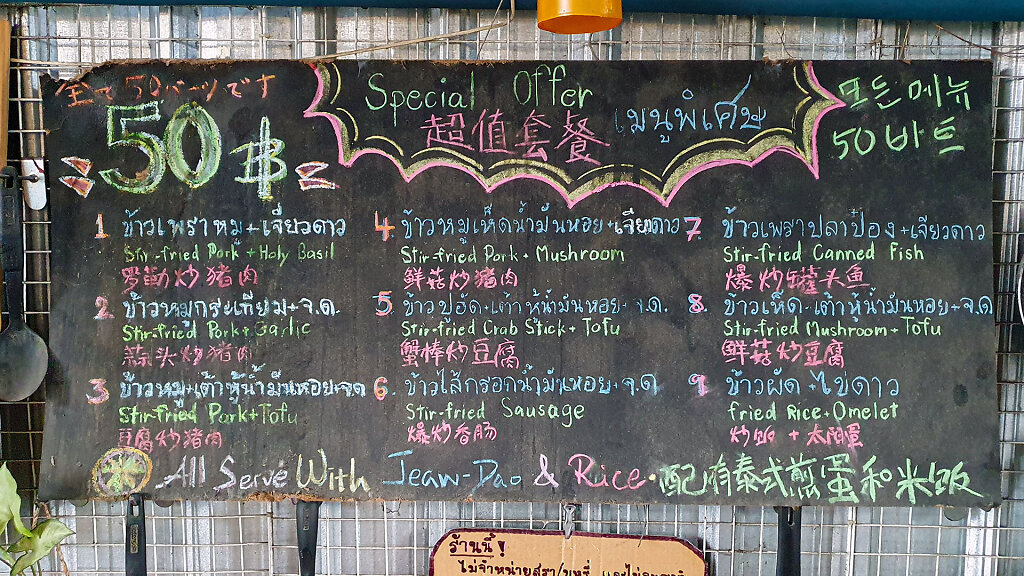 全て50バーツです
50฿
Special Offer
超值套餐
เมนูพิเศษ
모든메뉴
50바트
1 ข้าวเพราหมู+เจียวดาว
Stir-fried Pork + Holy Basil
罗勒炒猪肉
2. ข้าวหมูกระเทียม+จ.ด.
Stir-fried Pork + Garlic
蒜头炒猪肉
3 ข้าวหมู+เต้าหู้น้ำมันหอย+จ.ด
Stir-fried Pork + Tofu
豆腐炒猪肉
4. ข้าวหมูเห็ดน้ำมันหอย+เจียวดาว
Stir-fried Pork + Mushroom
鲜菇炒猪肉
5 ข้าวปูอัด+เต้าหู้น้ำมันหอย+จ.ด.
Stir-fried Crab Stick + Tofu
蟹棒炒豆腐
6. ข้าวไส้กรอกน้ำมันหอย+จ.ด.
Stir-fried Sausage
爆炒香肠
7. ข้าวเพราปลาป๋อง+เจียวดาว
Stir-fried Canned Fish
爆炒罐头鱼
8. ข้าวเห็ด+เต้าหู้น้ำมันหอย+จ.ด
Stir-fried Mushroom + Tofu
鲜菇炒豆腐
9 ข้าวผัด+ไข่ดาว
fried Rice + Omelet
炒饭 + 太阳蛋
All Serve With Jeaw-Dao & Rice.配有泰式煎蛋和米饭
ร้านนี้!
ไม่จำหน่ายสุรา/บุหรี่